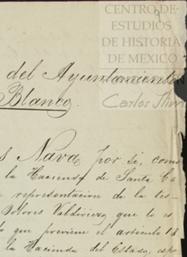 CENTRO DE
ESTUDIOS
DE HISTORIA
DE MEXICO
del Ayuntamiento
Blanco.
Carlos
Nava, por si, como
la Hacienda de Santa
representacion de la
Dolores Valdivieso, que le
lo que previene el articulo 18
la Hacienda del Estado,